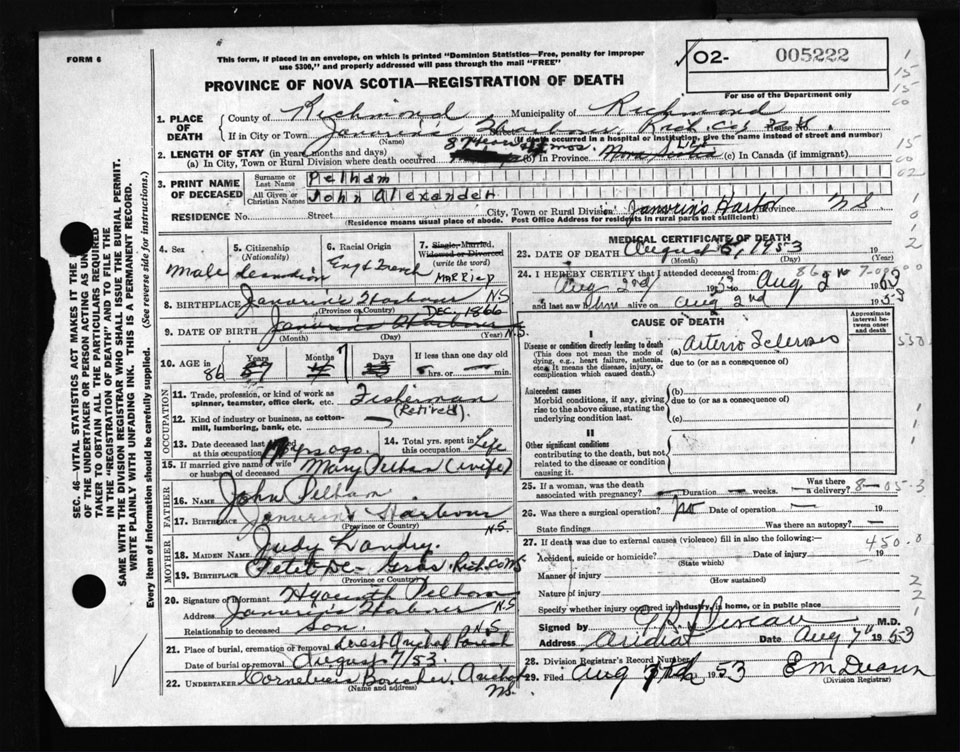 FORM 6
This form, if placed in an envelope, on which is printed "Dominion Statistics—Free, penalty for improper
use $300," and properly addressed will pass through the mail "FREE"
O2- 005222
For use of the Department only
PROVINCE OF NOVA SCOTIA—REGISTRATION OF DEATH
1. PLACE OF DEATH
County of Richmond Municipality of Richmond
If in City or Town Janvrin's Harbour, Rich. Co., N.S. Street House No.
(Name) (If death occurred in a hospital or institution, give the name instead of street and number)
2. LENGTH OF STAY (in years, months and days)
(a) In City, Town or Rural Division where death occurred (b) In Province Life (c) In Canada (if immigrant)
3. PRINT NAME OF DECEASED
Surname or Last Name Pelham
All Given or Christian Names John Alexander
RESIDENCE No. Street City, Town or Rural Division Janvrin's Harbor Province N.S.
(Residence means usual place of abode. Post Office Address for residents in rural parts not sufficient)
SEC. 46—VITAL STATISTICS ACT MAKES IT THE
OF THE UNDERTAKER OR PERSON ACTING AS UN
TAKER TO OBTAIN ALL THE PARTICULARS REQUIRED
IN THE "REGISTRATION OF DEATH" AND TO FILE THE
SAME WITH THE DIVISION REGISTRAR WHO SHALL ISSUE THE BURIAL PERMIT.
WRITE PLAINLY WITH UNFADING INK. THIS IS A PERMANENT RECORD.
Every item of information should be carefully supplied. (See reverse side for instructions.)
4. Sex Male
5. Citizenship (Nationality) Canadian
6. Racial Origin Eng & French
7. Single, Married, Widowed or Divorced (write the word) Married
8. BIRTHPLACE Janvrin's Harbour N.S.
(Province or Country)
9. DATE OF BIRTH Dec. 1866 Janvrins Harbour N.S.
(Month) (Day) (Year)
10. AGE in 86 Years Months Days If less than one day old
hrs. or min.
OCCUPATION
11. Trade, profession or kind of work as spinner, teamster, office clerk, etc. Fisherman
(Retired).
12. Kind of industry or business, as cotton-mill, lumbering, bank, etc. —
13. Date deceased last at this occupation yrs ago.
14. Total yrs. spent in this occupation Life
15. If married give name of wife or husband of deceased Mary Pelham (wife)
FATHER
16. NAME John Pelham
17. BIRTHPLACE Janvrin's Harbour N.S.
(Province or Country)
MOTHER
18. MAIDEN NAME Judy Landry.
19. BIRTHPLACE Petit De Gras, Rich. Co. N.S.
(Province or Country)
20. Signature of Informant Hyacinth Pelham
Address Janvrin's Harbour N.S.
Relationship to deceased Son. N.S.
21. Place of burial, cremation or removal West Arichat Parish
Date of burial or removal August 7/53.
22. UNDERTAKER Cornelius Boucher, Arichat N.S.
(Name and address)
MEDICAL CERTIFICATE OF DEATH
23. DATE OF DEATH August 5, 1953 19
(Month) (Day) (Year)
24. I HEREBY CERTIFY that I attended deceased from:
Aug 2nd 1953 to Aug 2 1953
and last saw him alive on Aug 2nd 1953
CAUSE OF DEATH
Approximate interval between onset and death
I
Disease or condition directly leading to death (a) Arterio Sclerosis
(This does not mean the mode of dying, e.g., heart failure, asthenia, etc. It means the disease, injury, or complication which caused death.)
due to (or as a consequence of)
Antecedent causes (b)
Morbid conditions, if any, giving rise to the above cause, stating the underlying condition last.
due to (or as a consequence of)
(c)
II
Other significant conditions
contributing to the death, but not related to the disease or condition causing it.
25. If a woman, was the death associated with pregnancy? — Duration — weeks. Was there a delivery?
8-05-3
26. Was there a surgical operation? no Date of operation — 19
State findings Was there an autopsy? —
27. If death was due to external causes (violence) fill in also the following:—
450.0
Accident, suicide or homicide? Date of injury 19
(State which)
Manner of injury
(How sustained)
Nature of injury
Specify whether injury occurred in industry, in home, or in public place
Signed by M.D.
Address Arichat Date Aug 7" 1953
28. Division Registrar's Record Number
29. Filed Aug 1953
(Division Registrar)